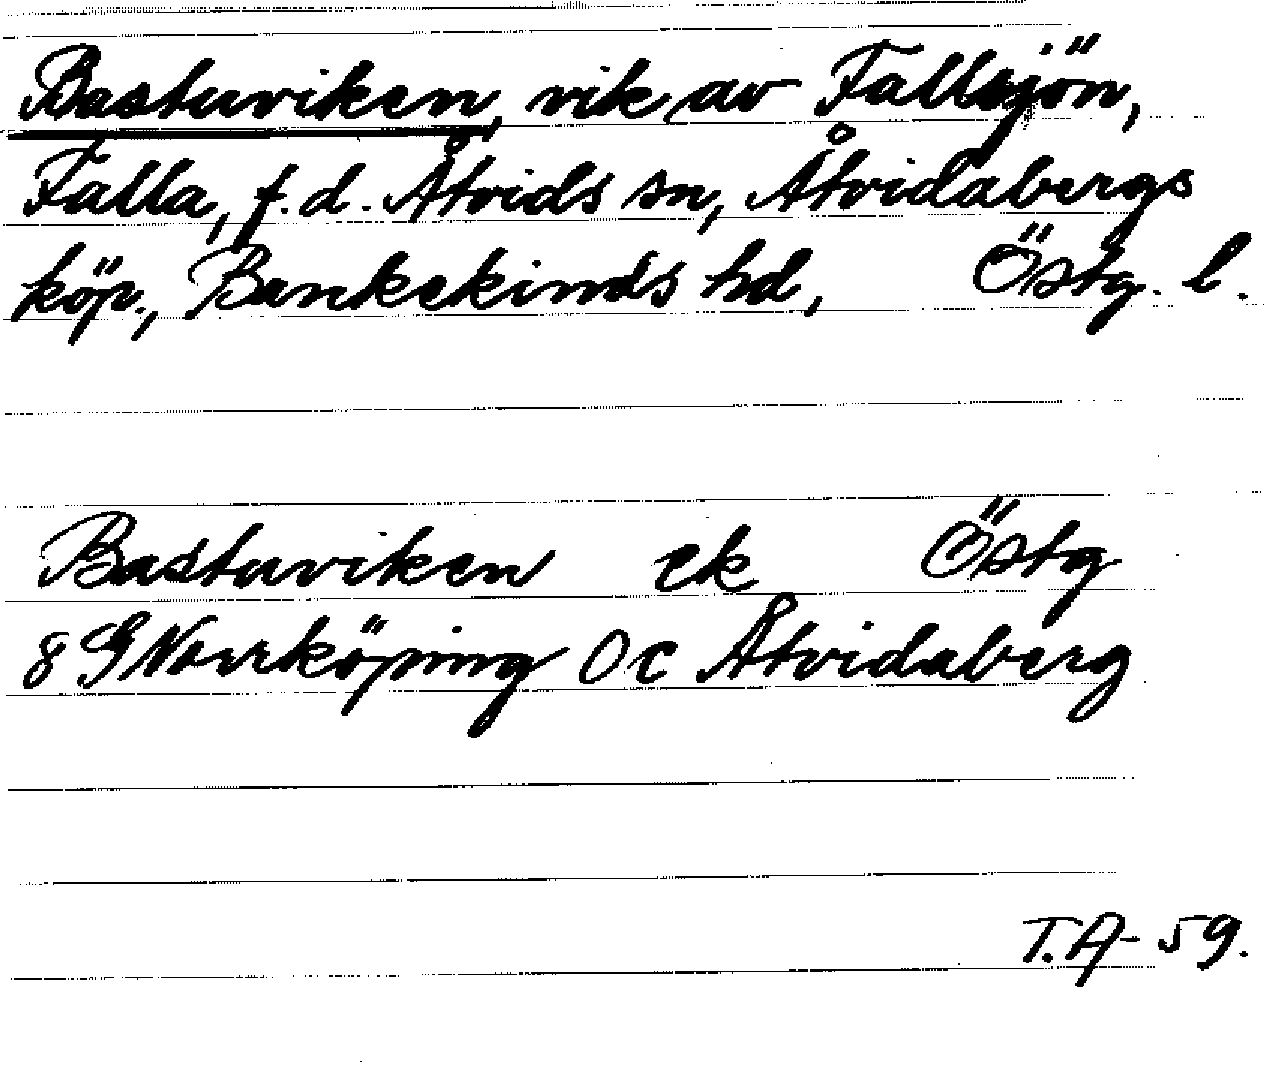 Bastuviken, vik av Fallsjön,
Falla, f.d. Åtvids sn, Åtvidabergs
köp., Bankekinds hd, Östg. l.
Bastuviken ek Östg
8 G Norrköping 0c Åtvidaberg
T.A-59.